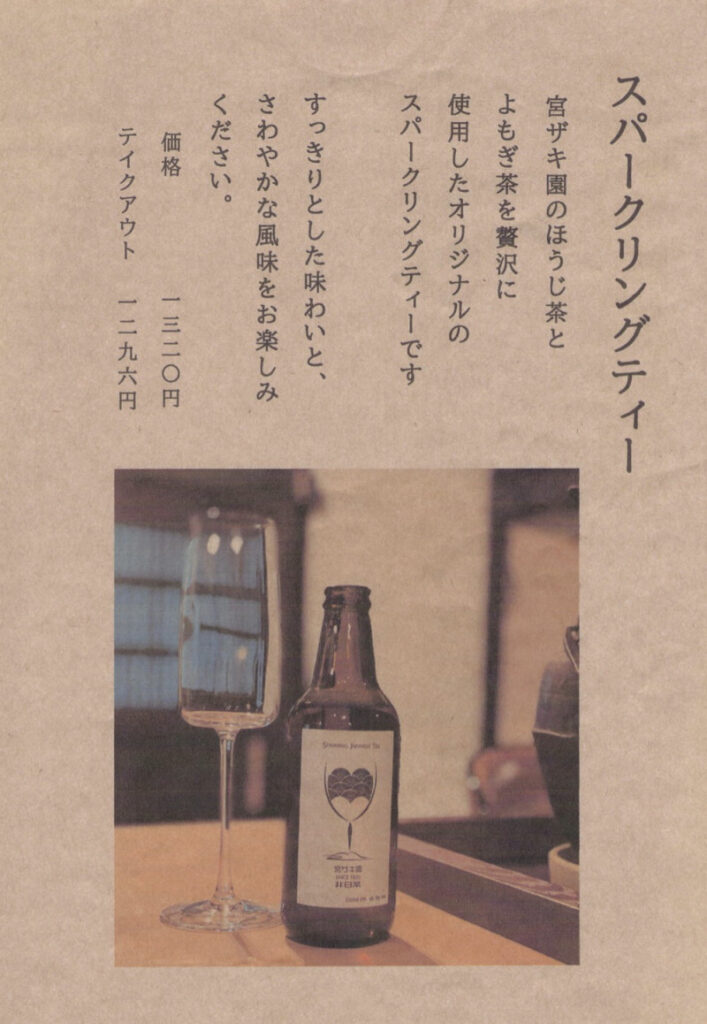 スパークリングティー
宮ザキ園のほうじ茶と
よもぎ茶を贅沢に
使用したオリジナルの
スパークリングティーです
すっきりとした味わいと、
さわやかな風味をお楽しみ
ください。
価格 一三二〇円
テイクアウト 一二九六円
SPARKLING JAPANESE TEA
宮ザキ園
非日常